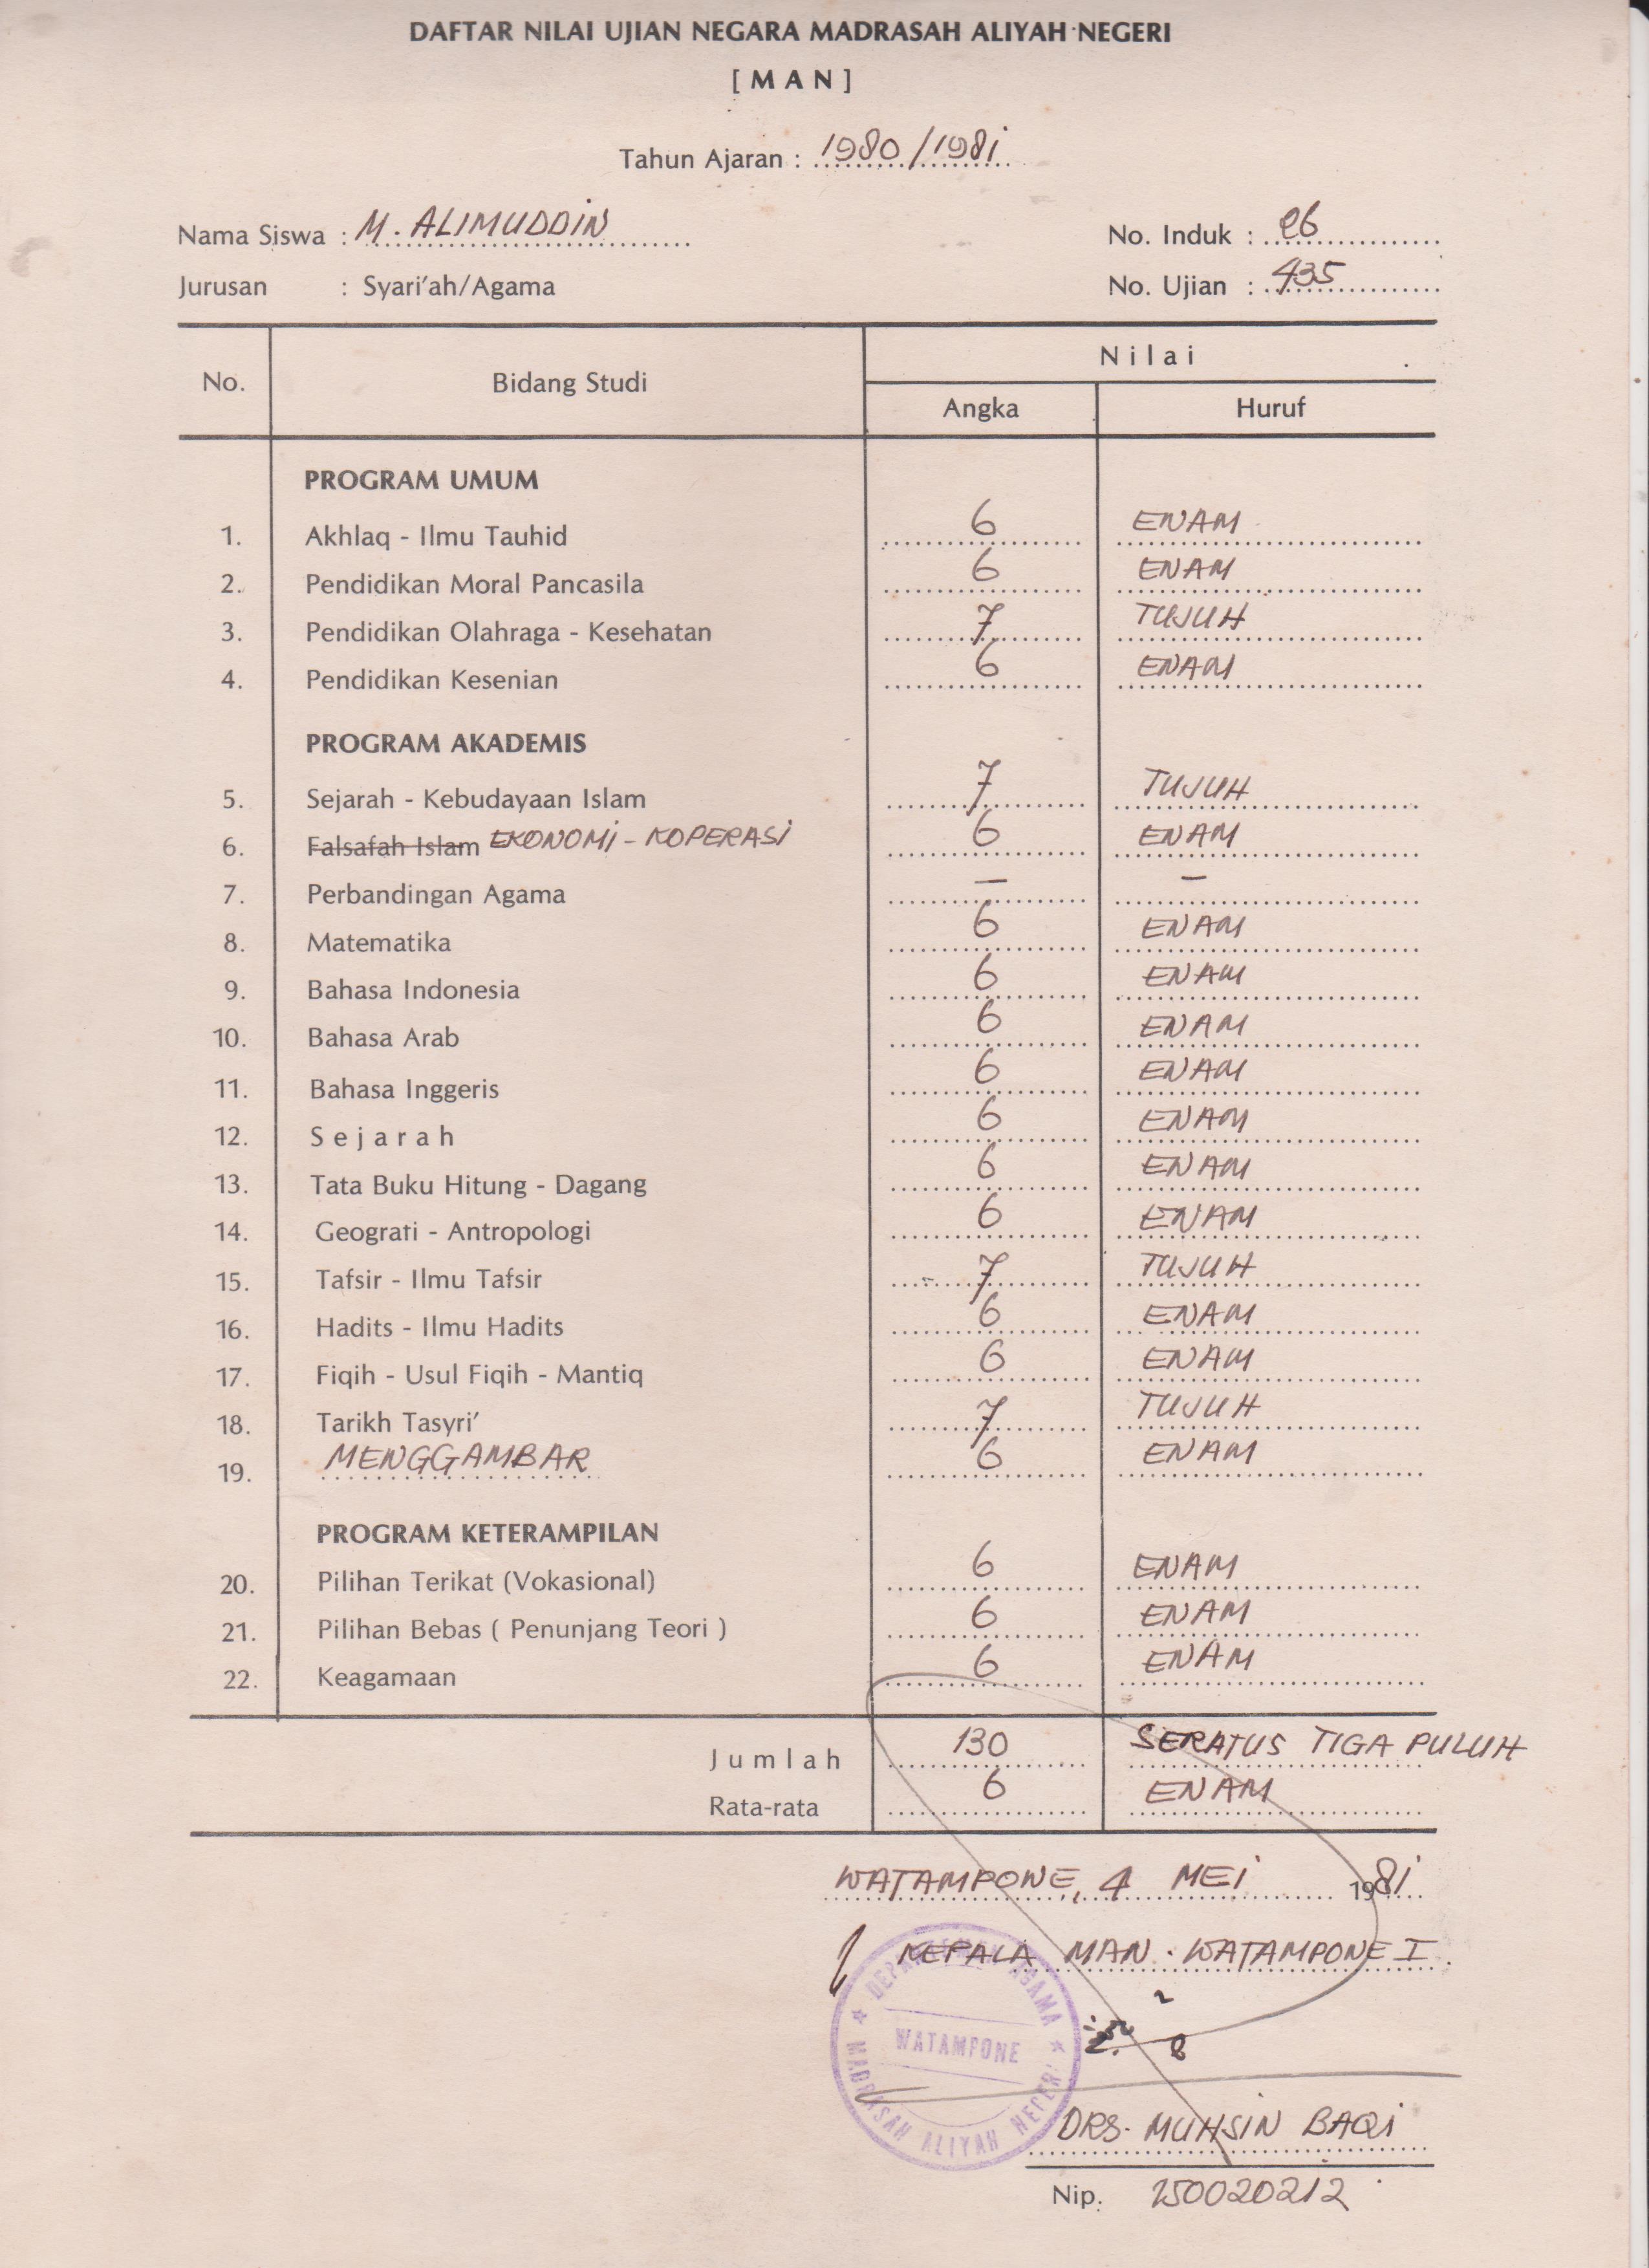 DAFTAR NILAI UJIAN NEGARA MADRASAH ALIYAH NEGERI
[ M A N ]
Tahun Ajaran : 1980/1981
Nama Siswa : M. ALIMUDDIN No. Induk : 26
Jurusan : Syari'ah/Agama No. Ujian : 435
No. Bidang Studi Nilai
Angka Huruf
PROGRAM UMUM
1. Akhlaq - Ilmu Tauhid 6 ENAM
2. Pendidikan Moral Pancasila 6 ENAM
3. Pendidikan Olahraga - Kesehatan 7 TUJUH
4. Pendidikan Kesenian 6 ENAM
PROGRAM AKADEMIS
5. Sejarah - Kebudayaan Islam 7 TUJUH
6. Falsafah Islam EKONOMI - KOPERASI 6 ENAM
7. Perbandingan Agama — —
8. Matematika 6 ENAM
9. Bahasa Indonesia 6 ENAM
10. Bahasa Arab 6 ENAM
11. Bahasa Inggeris 6 ENAM
12. S e j a r a h 6 ENAM
13. Tata Buku Hitung - Dagang 6 ENAM
14. Geografi - Antropologi 6 ENAM
15. Tafsir - Ilmu Tafsir 7 TUJUH
16. Hadits - Ilmu Hadits 6 ENAM
17. Fiqih - Usul Fiqih - Mantiq 6 ENAM
18. Tarikh Tasyri' 7 TUJUH
19. MENGGAMBAR 6 ENAM
PROGRAM KETERAMPILAN
20. Pilihan Terikat (Vokasional) 6 ENAM
21. Pilihan Bebas ( Penunjang Teori ) 6 ENAM
22. Keagamaan 6 ENAM
J u m l a h 130 SERATUS TIGA PULUH
Rata-rata 6 ENAM
WATAMPONE, 4 MEI 1981
KEPALA MAN. WATAMPONE I.
DEPARTEMEN AGAMA
WATAMPONE
MADRASAH ALIYAH NEGERI
DRS. MUHSIN BAQI
Nip. 150020212